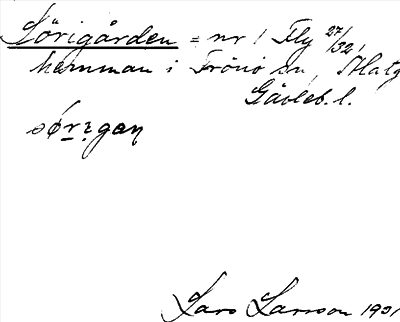 Sörigården = nr 1 Fly 27/32,
hemman i Frönö sn,
Gävleb. l.
sørigan
Lars Larsson 1931